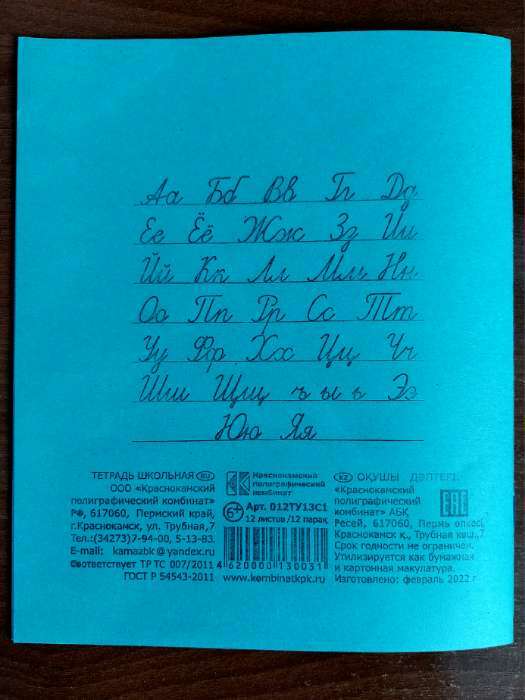 Аа Бб Вв Гг Дд
Ее Ёё Жж Зз Ии
Йй Кк Лл Мм Нн
Оо Пп Рр Сс Тт
Уу Фф Хх Цц Чч
Шш Щщ ъ ы ь Ээ
Юю Яя
ТЕТРАДЬ ШКОЛЬНАЯ RU
ООО «Краснокамский
полиграфический комбинат»
РФ, 617060, Пермский край,
г.Краснокамск, ул. Трубная,7
Тел.:(34273)7-94-00, 5-13-83.
E-mail: kamazbk@yandex.ru
Соответствует ТР ТС 007/2011
ГОСТ Р 54543-2011
Краснокамский
полиграфический
комбинат
6+ Арт. 012ТУ13С1
12 листов /12 парақ
4 620000 130031
www.kombinatkpk.ru
KZ ОҚУШЫ ДӘПТЕРІ
«Краснокамский
полиграфический
комбинат» АБҚ,
EAC
Ресей, 617060, Пермь
Краснокамск қ., Трубная көш.,7
Срок годности не ограничен.
Утилизируется как бумажная
и картонная макулатура.
Изготовлено: февраль 2022 г.